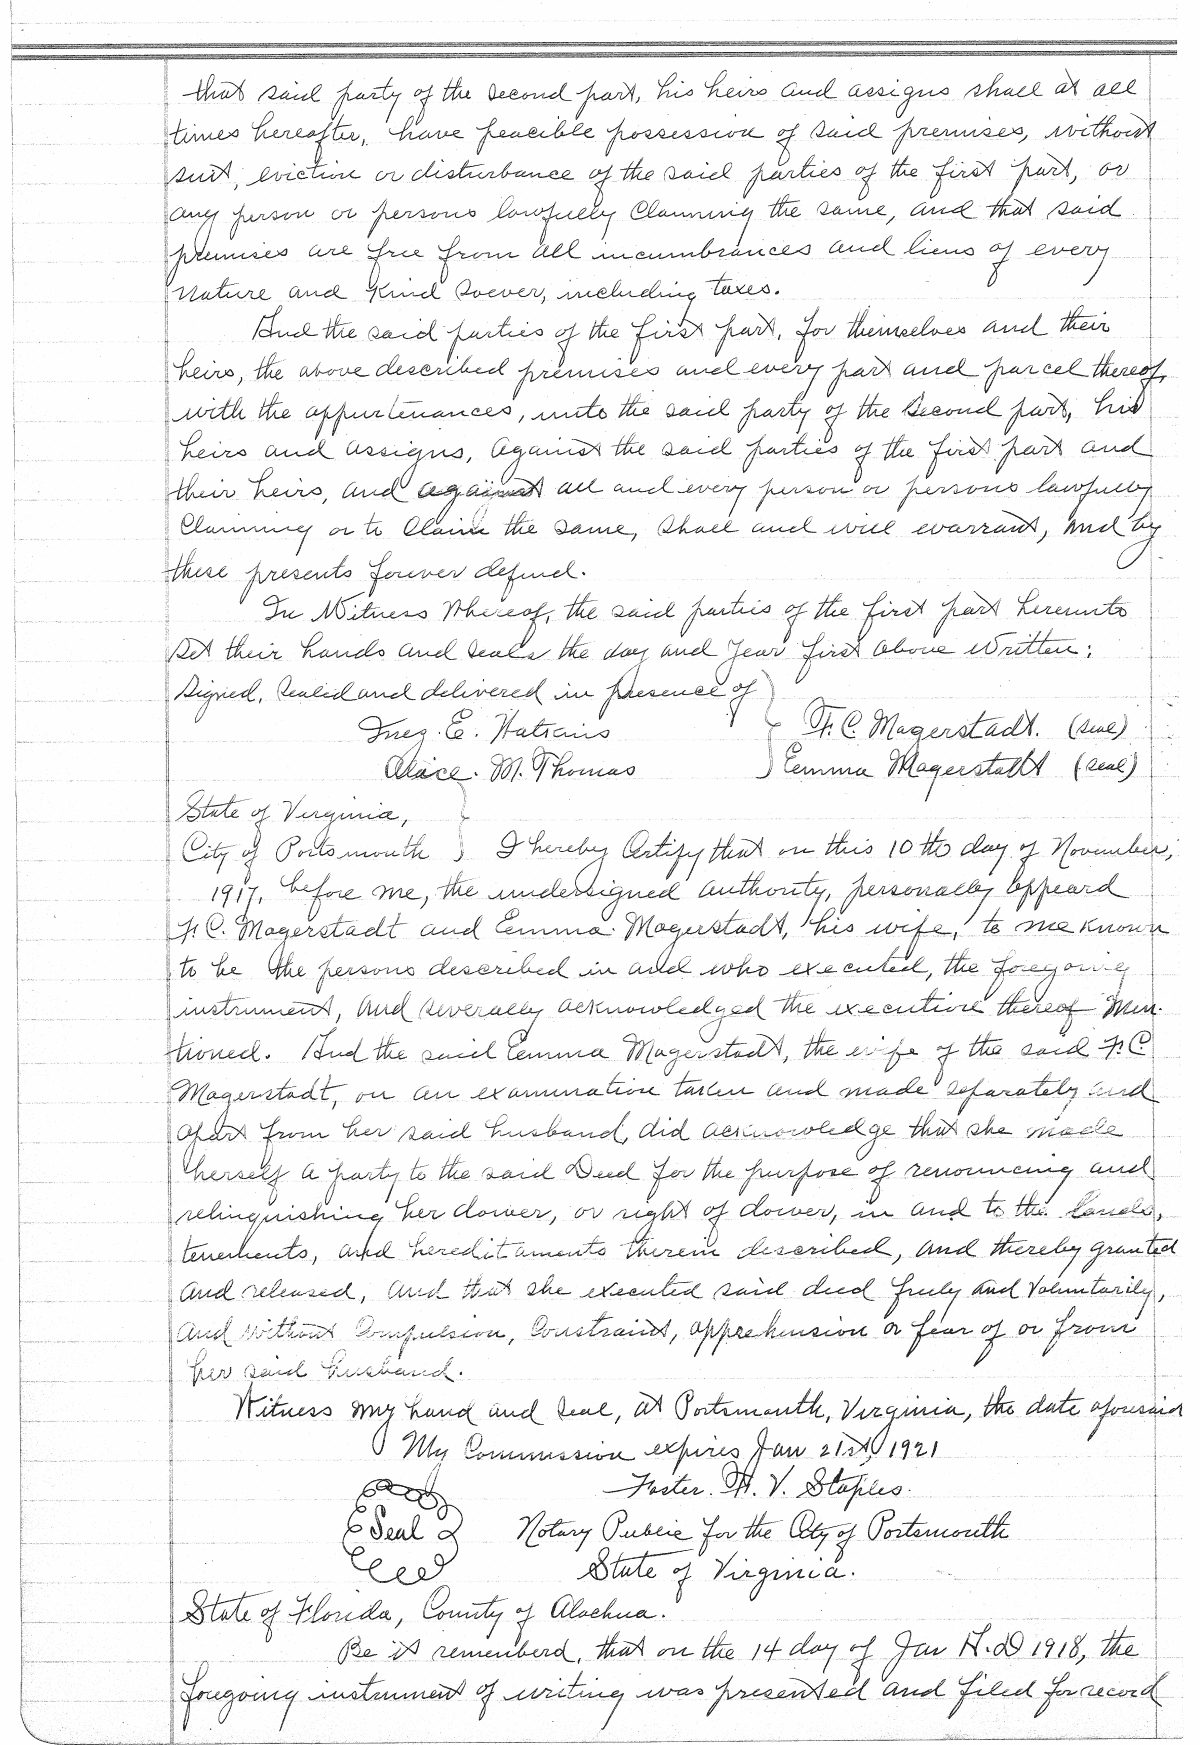 that said party of the second part, his heirs and assigns shall at all
times hereafter, have peacible possession of said premises, without
suit, eviction or disturbance of the said parties of the first part, or
any person or persons lawfully Claiming the same, and that said
premises are free from all incumbrances and liens of every
Nature and Kind soever, including taxes.
And the said parties of the first part, for themselves and their
heirs, the above described premises and every part and parcel thereof,
with the appurtenances, unto the said party of the second part, his
heirs and assigns, against the said parties of the first part and
their heirs, and against all and every person or persons lawfully
Claiming or to Claim the same, shall and will warrant, and by
these presents forever defend.
In Witness Whereof, the said parties of the first part hereunto
set their hands and seals the day and year first above written:
Signed, sealed and delivered in presence of
Inez. E. Watkins } F. C. Magerstadt. (seal)
Alice. M. Thomas } Emma Magerstadt (seal)
State of Virginia,
City of Portsmouth } I hereby Certify that on this 10th day of November,
1917, before me, the undersigned authority, personally appeard
F. C. Magerstadt and Emma Magerstadt, his wife, to me known
to be the persons described in and who executed, the foregoing
instrument, and severally acknowledged the execution thereof Men-
tioned. And the said Emma Magerstadt, the wife of the said F. C.
Magerstadt, on an examination taken and made separately and
apart from her said husband, did acknowledge that she made
herself a party to the said Deed for the purpose of renouncing and
relinquishing her dower, or right of dower, in and to the lands,
tenements, and hereditaments therein described, and thereby granted
and released, and that she executed said deed freely and Voluntarily,
and without Compulsion, Constraint, apprehension or fear of or from
her said husband.
Witness my hand and seal, at Portsmouth, Virginia, the date aforesaid
My Commission expires Jan 21st, 1921
Foster. H. V. Staples.
Seal Notary Public for the City of Portsmouth
State of Virginia.
State of Florida, County of Alachua.
Be it rememberd, that on the 14 day of Jan A.D 1918, the
foregoing instrument of writing was presented and filed for record